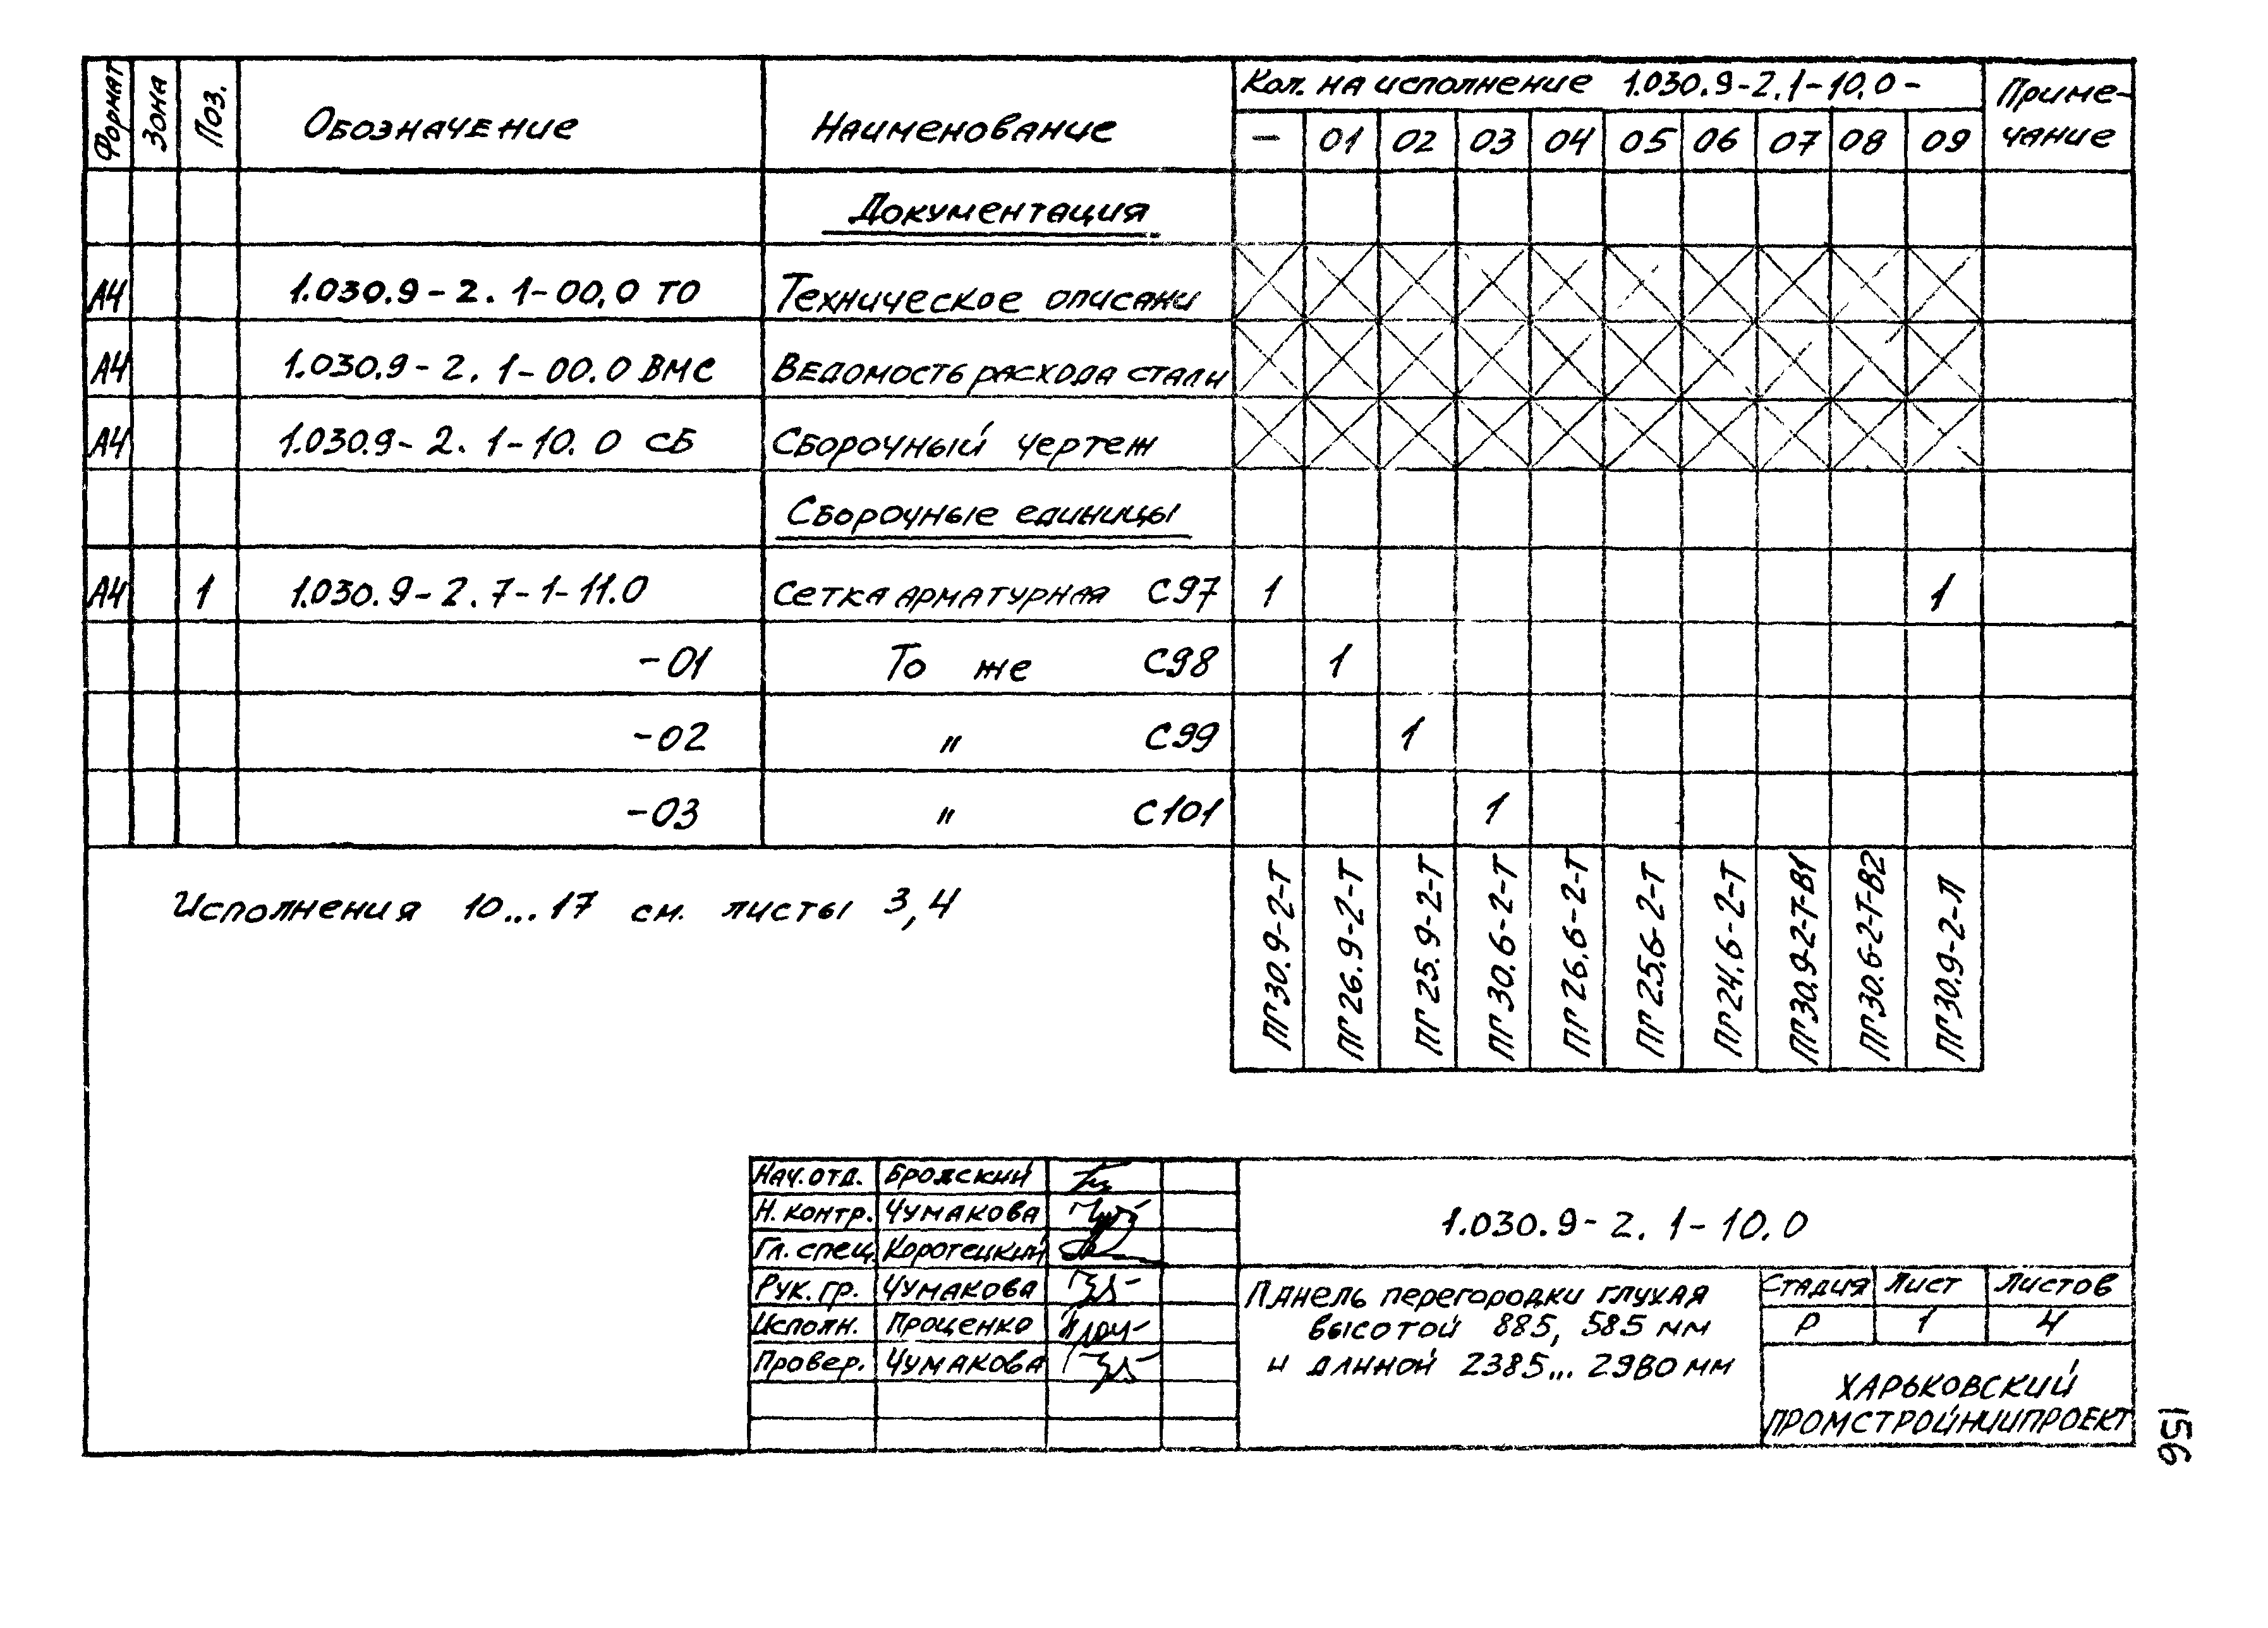 Формат Зона Поз. Обозначение Наименование Кол. на исполнение 1.030.9-2.1-10.0- Приме-
чание
— 01 02 03 04 05 06 07 08 09
Документация
А4 1.030.9-2.1-00.0 ТО Техническое описани
А4 1.030.9-2.1-00.0 ВМС Ведомость расхода стали
А4 1.030.9-2.1-10.0 СБ Сборочный чертеж
Сборочные единицы
А4 1 1.030.9-2.7-1-11.0 Сетка арматурная С97 1 1
-01 То же С98 1
-02 " С99 1
-03 " С101 1
ПГ30.9-2-Т ПГ26.9-2-Т ПГ25.9-2-Т ПГ30.6-2-Т ПГ26.6-2-Т ПГ25.6-2-Т ПГ24.6-2-Т ПГ30.9-2-Т-В1 ПГ30.6-2-Т-В2 ПГ30.9-2-П
Исполнения 10...17 см. листы 3,4
Нач. отд. Бродский
Н. контр. Чумакова
Гл. спец. Коротецкий
Рук. гр. Чумакова
Исполн. Проценко
Провер. Чумакова
1.030.9-2.1-10.0
Панель перегородки глухая
высотой 885, 585 мм
и длиной 2385...2980 мм
Стадия Лист Листов
Р 1 4
ХАРЬКОВСКИЙ
ПРОМСТРОЙНИИПРОЕКТ
156